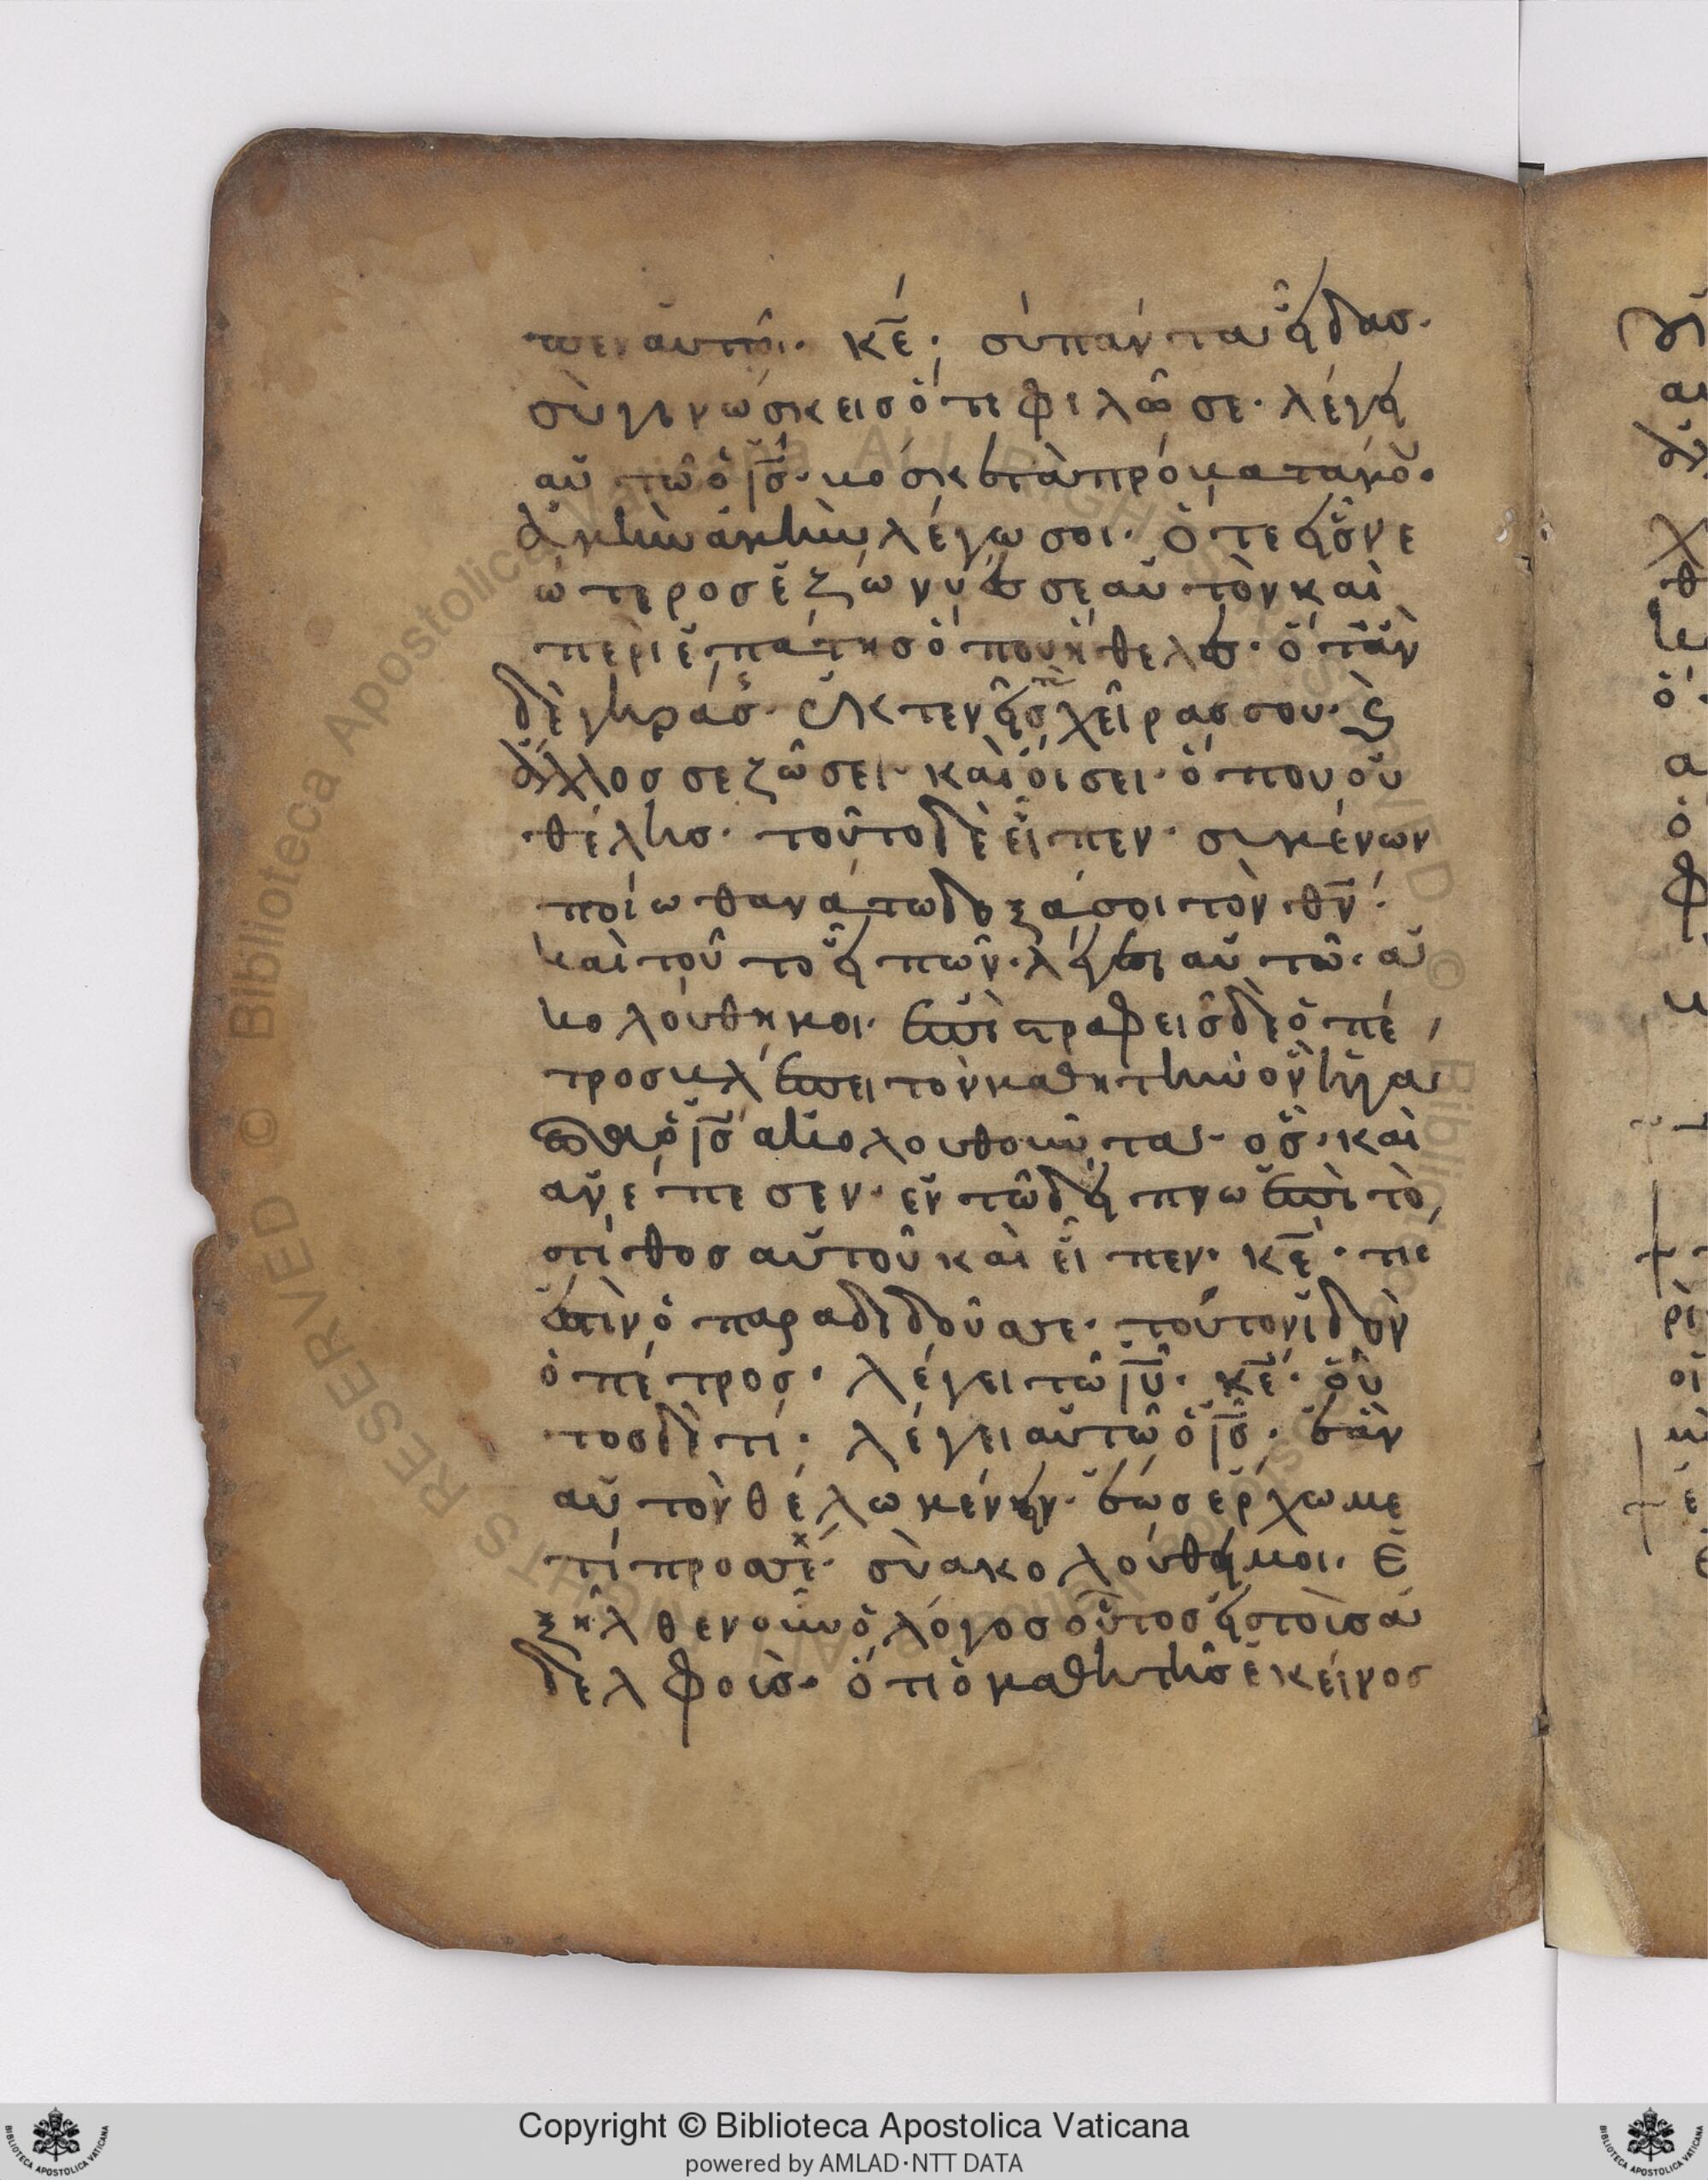 πεν αὐτῶ· κε̅· σὺ πάντα εἶδασ·
σὺ γινώσκεισ ὅτι φιλῶ σε· λέγει
αὐτῶ ὁ ισ̅· μόσκε τὰ πρόματα μου·
ἀμὴν ἀμὴν λέγω σοι· ὅτε εἶσ νε
ώτεροσ ἐζώννυεσ σεαὐτὸν καὶ
περιεπάτησ ὅπου ἤθελεσ· ὅταν
δὲ γηράσεις· ἐκτενεῖσ τὰσ χεῖρασ σου· καὶ
ἄλλοσ σε ζώσει· καὶ οἴσει· ὅπου οὐ
θέλησ· τοῦτο δὲ εἶπεν· σιμένων
ποίω θανάτω δοξάσοι τὸν θν̅·
καὶ τοῦτο εἰπῶν· λέγει αὐτῶ· ἀ
κολούθη μοι· ἐπιστραφεὶσ δὲ ὁ πέ
τροσ βλέπει τὸν μαθητὴν ὃν ἠγά
πα ὁ ισ̅ ακολουθοῦντα· ὃσ· καὶ
ἀνέπεσεν· ἐν τῶ δείπνω ἐπὶ τὸ
στίθοσ αὐτοῦ καὶ εἶπεν· κε̅· τίσ
ἐστὶν ὁ παραδιδούσ σε· τοῦτον ἰδὼν
ὁ πέτροσ· λέγει τῶ ιυ̅· κε̅· οὗ
τοσ δὲ τί· λέγει αὐτῶ ὁ ισ̅· ἐὰν
αὐτὸν θέλω μένειν· ἕωσ ἔρχωμε
τί προσ σέ· σὺ ακολούθει μοι· Ἐ
ξῆλθεν οὖν ὁ λόγοσ οὗτοσ εἰσ τοὶσ ἀ
δελφοὶσ· ὅτι ὁ μαθητὴσ ἐκείνοσ